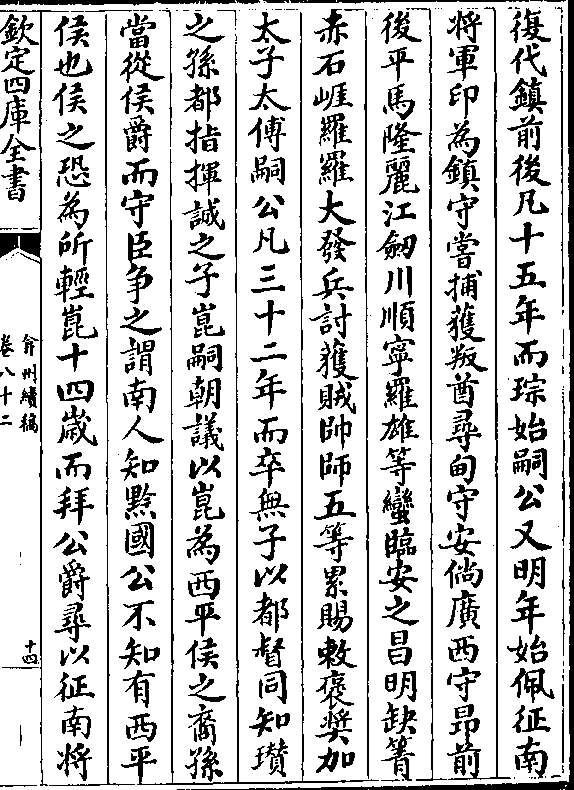 復代鎮前後凡十五年而琮始嗣公又明年始佩征南
将軍印為鎮守嘗捕獲叛酋尋甸守安倘廣西守昻前
後平馬隆麗江劒川順寧羅雄等蠻臨安之昌明缺箐
赤石崕羅羅大發兵討獲賊帥師五等累賜敕褒奨加
太子太傅嗣公凡三十二年而卒無子以都督同知瓉
之孫都指揮誠之子崑嗣朝議以崑為西平侯之裔孫
當從侯爵而守臣争之謂南人知黔國公不知有西平
侯也侯之恐為所輕崑十四歲而拜公爵尋以征南將
欽定四庫全書
弇州續稿
卷八十二
十四